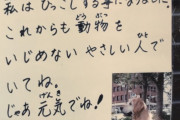 私はひっこしする事になりましたが、
これからも動物を
どうぶつ
いじめない やさしい人で
ひと
いてね。
じゃあ元気でね!
げんき